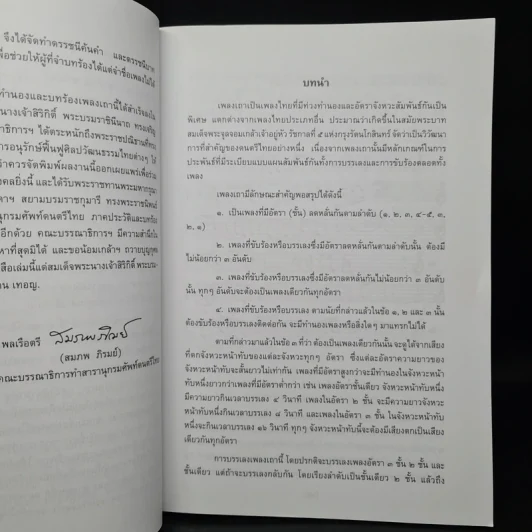 จึงได้จัดทำดรรชนีค้นคำ และดรรชนีบาท
เพื่อช่วยให้ผู้ที่จำบทร้องได้แต่จำชื่อเพลงไม่ได้
ทำนองและบทร้องเพลงเถานี้ได้สำเร็จลง
นางเจ้าสิริกิติ์ พระบรมราชินีนาถ ทรงเจริญ
ธิการฯ ได้ตระหนักถึงพระราชปณิธานที่ทรง
การอนุรักษ์ฟื้นฟูศิลปวัฒนธรรมไทยต่างๆ ได้
ว่าควรจัดพิมพ์ผลงานนี้ออกเผยแพร่เพื่อร่วม
คลยิ่งนี้ และได้รับพระราชทานพระมหากรุณา
ดาฯ สยามบรมราชกุมารี ทรงพระราชนิพนธ์
นุกรมศัพท์ดนตรีไทย ภาคประวัติและบทร้อง
อีกด้วย คณะบรรณาธิการฯ มีความสำนึกใน
หาที่สุดมิได้ และขอน้อมเกล้าฯ ถวายบุญกุศล
สือเล่มนี้แด่สมเด็จพระนางเจ้าสิริกิติ์ พระบรม
าน เทอญ.
พลเรือตรี สมภพ ภิรมย์
(สมภพ ภิรมย์)
คณะบรรณาธิการทำสารานุกรมศัพท์ดนตรีไทย
บทนำ
เพลงเถาเป็นเพลงไทยที่มีท่วงทำนองและอัตราจังหวะสัมพันธ์กันเป็น
พิเศษ แตกต่างจากเพลงไทยประเภทอื่น ประมาณว่าเกิดขึ้นในสมัยพระบาท
สมเด็จพระจุลจอมเกล้าเจ้าอยู่หัว รัชกาลที่ ๕ แห่งกรุงรัตนโกสินทร์ จัดว่าเป็นวิวัฒนา
การที่สำคัญของดนตรีไทยอย่างหนึ่ง เนื่องจากเพลงเถานั้นมีหลักเกณฑ์ในการ
ประพันธ์ที่มีระเบียบแบบแผนสัมพันธ์กันทั้งการบรรเลงและการขับร้องตลอดทั้ง
เพลง
เพลงเถามีลักษณะสำคัญพอสรุปได้ดังนี้
๑. เป็นเพลงที่มีอัตรา (ชั้น) ลดหลั่นกันตามลำดับ (๑, ๒, ๓, ๔-๕, ๓,
๒, ๑)
๒. เพลงที่ขับร้องหรือบรรเลงซึ่งมีอัตราลดหลั่นกันตามลำดับนั้น ต้องมี
ไม่น้อยกว่า ๓ อันดับ
๓. เพลงที่ขับร้องหรือบรรเลงซึ่งมีอัตราลดหลั่นกันไม่น้อยกว่า ๓ อันดับ
นั้น ทุกๆ อันดับจะต้องเป็นเพลงเดียวกันทุกอัตรา
๔. เพลงที่ขับร้องหรือบรรเลง ตามนัยที่กล่าวแล้วในข้อ ๑, ๒ และ ๓ นั้น
ต้องขับร้องหรือบรรเลงติดต่อกัน จะมีทำนองเพลงหรือสิ่งใดๆ มาแทรกไม่ได้
ตามที่กล่าวมาแล้วในข้อ ๓ ที่ว่า ต้องเป็นเพลงเดียวกันนั้น จะดูได้จากเสียง
ที่ตกจังหวะหน้าทับของแต่ละจังหวะทุกๆ อัตรา ซึ่งแต่ละอัตราความยาวของ
จังหวะหน้าทับจะสั้นยาวไม่เท่ากัน เพลงที่มีอัตราสูงกว่าจะมีทำนองในจังหวะหน้า
ทับหนึ่งยาวกว่าเพลงที่มีอัตราต่ำกว่า เช่น เพลงอัตราชั้นเดียว จังหวะหน้าทับหนึ่ง
มีความยาวกินเวลาบรรเลง ๔ วินาที เพลงในอัตรา ๒ ชั้น จะมีความยาวจังหวะ
หน้าทับหนึ่งกินเวลาบรรเลง ๘ วินาที และเพลงในอัตรา ๓ ชั้น ในจังหวะหน้าทับ
หนึ่งจะกินเวลาบรรเลง ๑๖ วินาที ทุกๆ จังหวะหน้าทับนี้จะต้องมีเสียงตกเป็นเสียง
เดียวกันทุกอัตรา
การบรรเลงเพลงเถานี้ โดยปรกติจะบรรเลงเพลงอัตรา ๓ ชั้น ๒ ชั้น และ
ชั้นเดียว แต่ถ้าจะบรรเลงกลับกัน โดยเรียงลำดับเป็นชั้นเดียว ๒ ชั้น แล้วถึง